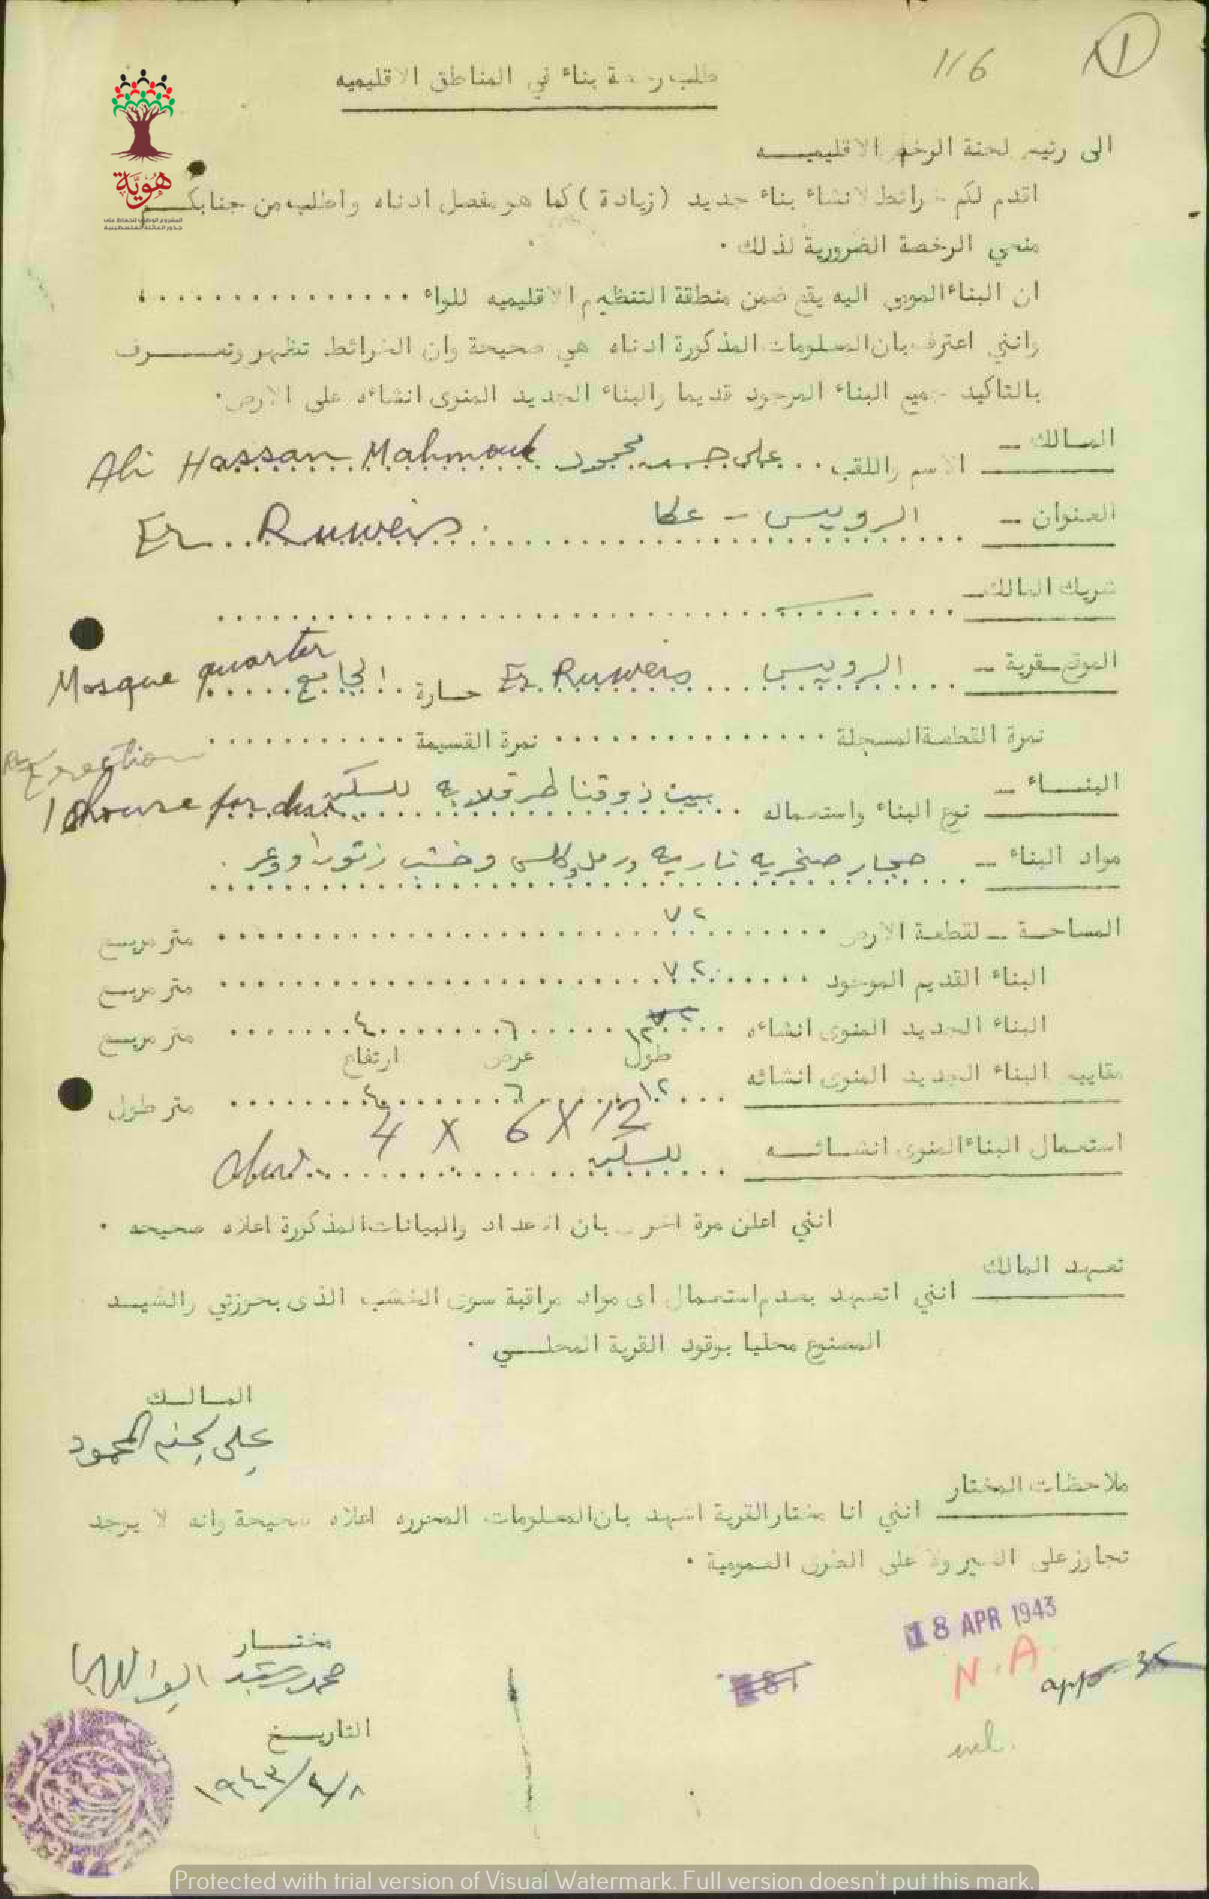 116
1
طلب رخصة بناء في المناطق الاقليميه
هوية
المشروع الوطني للحفاظ على
جذور العائلة الفلسطينية
الى رئيس لجنة الرخص الاقليميـــه
اقدم لكم خرائط لانشاء بناء جديد (زيادة) كما هو مفصل ادناه واطلب من جنابكـــم
منحي الرخصة الضرورية لذلك .
ان البناء المومى اليه يقع ضمن منطقة التنظيم الاقليميه للواء ...............
وانني اعترف بان المعلومات المذكورة ادناه هي صحيحة وان الخرائط تظهر وتعـــرف
بالتاكيد جميع البناء الموجود قديما والبناء الجديد المنوى انشاءه على الارض.
المالك – الاسم واللقب .. على حسن محمود Ali Hassan Mahmoud
العنوان – الرويس - عكا Er Ruweis
شريك المالك –
الموقع قرية – الرويس Er Ruweis حارة الجامع Mosque quarter
نمرة القطعة المسجلة ............... نمرة القسيمة ............
Erection
البنـــاء – نوع البناء واستعماله .. بيت ذو قناطر للسكن
1 house for
مواد البناء – حجار صخريه ناريه ورمل وكلس وخشب
المساحـة – لقطعة الارض ٧٢ متر مربع
البناء القديم الموجود ٧٢ متر مربع
البناء الجديد المنوى انشاءه ١٢ ٦ ٤ متر مربع
طول عرض ارتفاع
مقاييس البناء الجديد المنوى انشائه ١٢ ٦ ٤ متر طول
4 X 6 X 12
استعمال البناء المنوى انشـائـــه للسكن
انني اعلن مرة اخرى بان الاعداد والبيانات المذكورة اعلاه صحيحه .
تعهد المالك
انني اتعهد بعدم استعمال اى مواد مراقبة سوى الخشب الذى بحوزتي والشيـــد
المصنوع محليا بوقود القرية المحلـــي .
المـالـــك
على حسن المحمود
ملاحظات المختار
انني انا مختار القرية اشهد بان المعلومات المحرره اعلاه صحيحة وانه لا يوجد
تجاوز على السير ولا على الطرق العمومية .
18 APR 1943
N.A
مختـــار
محمد ابو الهيجا
التاريـــخ
١٩٤٣/٤/٨
Protected with trial version of Visual Watermark. Full version doesn't put this mark.